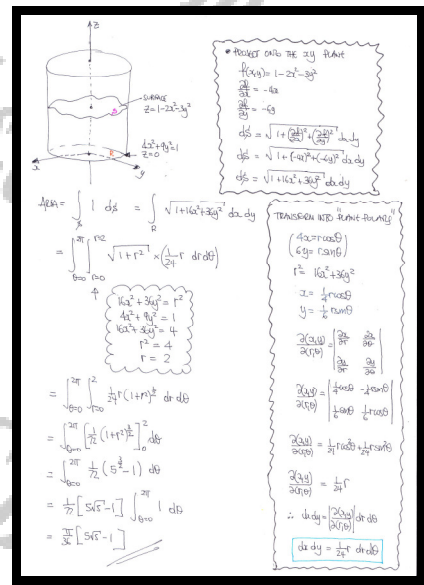 z
SURFACE
z=1-2x²-3y²
S
4x²+9y²=1
z=0
R
x
y
• PROJECT ONTO THE xy PLANE
f(x,y) = 1-2x²-3y²
∂f/∂x = -4x
∂f/∂y = -6y
dS = √(1+(∂f/∂x)²+(∂f/∂y)²) dx dy
dS = √(1+(-4x)²+(-6y)²) dx dy
dS = √(1+16x²+36y²) dx dy
AREA = ∫_S 1 dS = ∫_R √(1+16x²+36y²) dx dy
= ∫_{θ=0}^{2π} ∫_{r=0}^{r=2} √(1+r²) × (1/24 r dr dθ)
16x²+36y² = r²
4x²+9y² = 1
16x²+36y² = 4
r² = 4
r = 2
= ∫_{θ=0}^{2π} ∫_{r=0}^{2} 1/24 r(1+r²)^{1/2} dr dθ
= ∫_{θ=0}^{2π} [1/72 (1+r²)^{3/2}]_0^2 dθ
= ∫_{θ=0}^{2π} 1/72 (5^{3/2}-1) dθ
= 1/72 [5√5-1] ∫_{θ=0}^{2π} 1 dθ
= π/36 [5√5-1]
TRANSFORM INTO "PLANE POLARS"
(4x = rcosθ
6y = rsinθ)
r² = 16x²+36y²
x = 1/4 rcosθ
y = 1/6 rsinθ
∂(x,y)/∂(r,θ) = |∂x/∂r ∂x/∂θ|
|∂y/∂r ∂y/∂θ|
∂(x,y)/∂(r,θ) = |1/4 cosθ -1/4 rsinθ|
|1/6 sinθ 1/6 rcosθ|
∂(x,y)/∂(r,θ) = 1/24 rcos²θ + 1/24 rsin²θ
∂(x,y)/∂(r,θ) = 1/24 r
∴ dx dy = |∂(x,y)/∂(r,θ)| dr dθ
dx dy = 1/24 r dr dθ